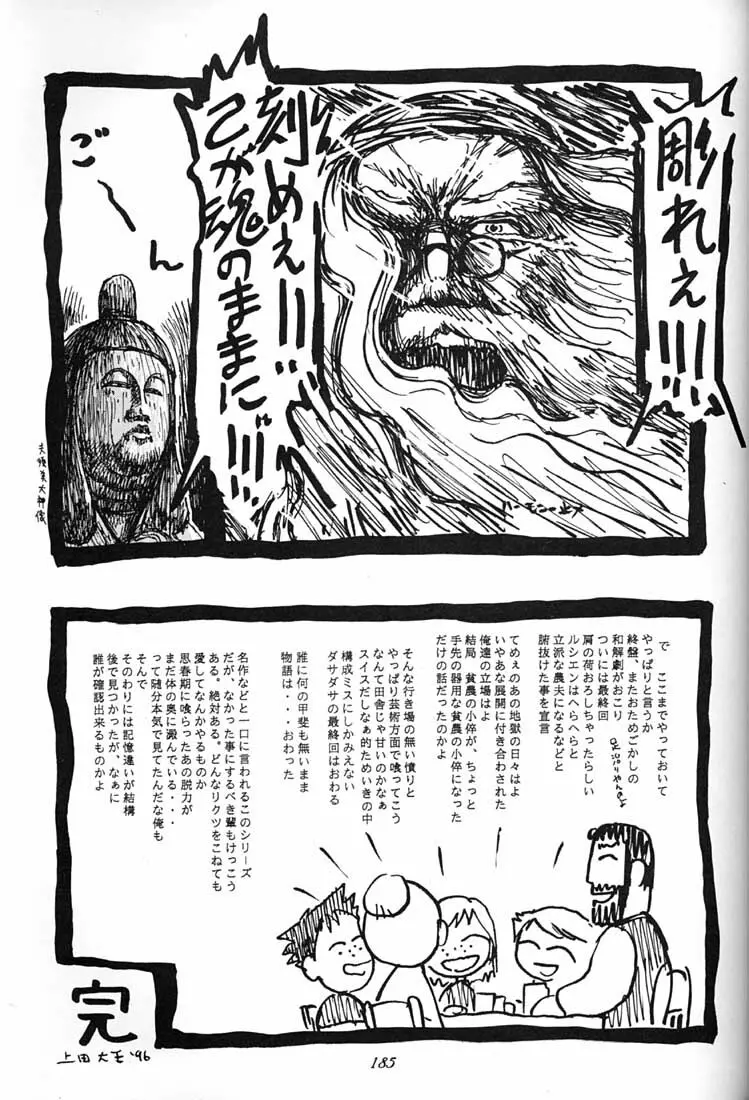 彫れぇ!!!
刻めぇ!!
己が魂のままに!!!
ごーん
で　ここまでやっておいて
やっぱりと言うか
終盤、またおためごかしの
和解劇がおこり
ついには最終回
肩の荷おろしちゃったらしい
ルシエンはへらへらと
立派な農夫になるなどと
腑抜けた事を宣言
てめぇのあの地獄の日々はよ
いやあな展開に付き合わされた
俺達の立場はよ
結局　貧農の小倅が、ちょっと
手先の器用な貧農の小倅になった
だけの話だったのかよ
そんな行き場の無い憤りと
やっぱり芸術方面で喰ってこう
なんて田舎じゃ甘いのかなぁ
スイスだしなぁ的ためいきの中
構成ミスにしかみえない
ダサダサの最終回はおわる
誰に何の甲斐も無いまま
物語は・・・おわった
名作などと一口に言われるこのシリーズ
だが、なかった事にするべき輩もけっこう
ある。絶対ある。どんなリクツをこねても
愛してなんかやるものか
思春期に喰らったあの脱力が
まだ体の奥に澱んでいる・・・
って随分本気で見てたんだな俺も
そんで
そのわりには記憶違いが結構
後で見つかったが、なぁに
誰が確認出来るものかよ
完
上田大王'96
185